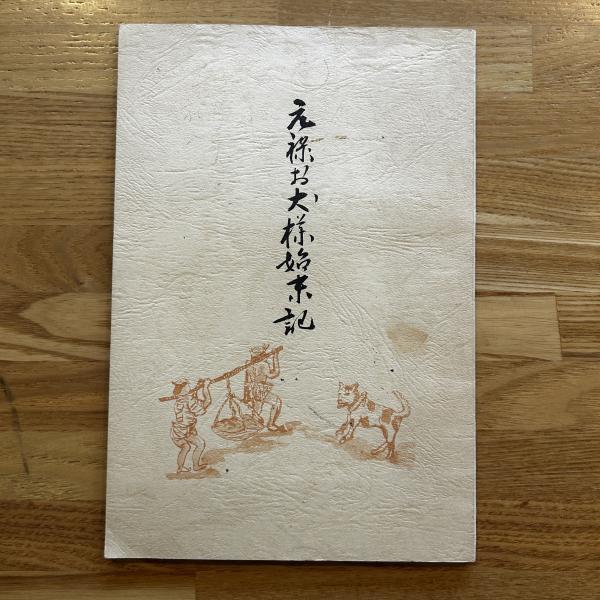 元禄お犬様始末記